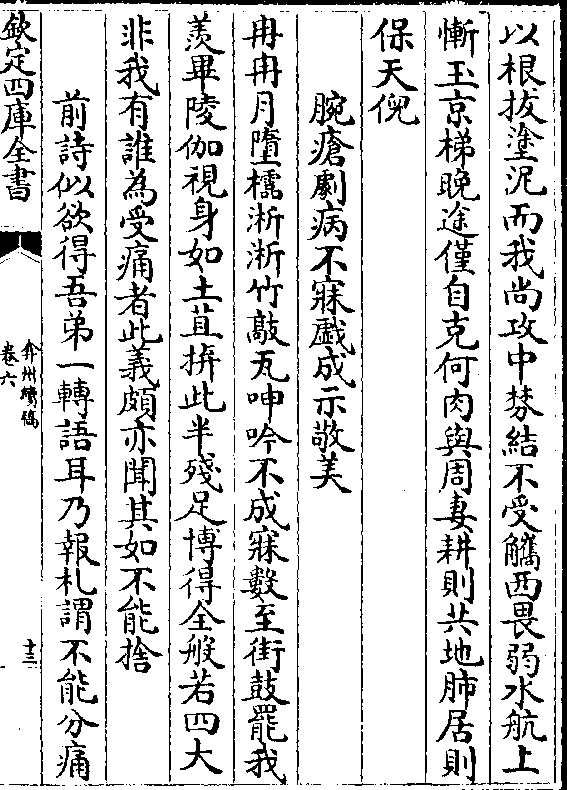 以根拔塗泥而我尚攻中棼結不受觿西畏弱水航上
慚玉京梯晚途僅自克何肉與周妻耕則共地肺居則
保天倪
腕瘡劇病不寐戲成示敬美
冉冉月墮檐淅淅竹敲瓦呻吟不成寐數至街鼓罷我
羨畢陵伽視身如土苴拚此半殘足博得全般若四大
非我有誰為受痛者此義頗亦聞其如不能捨
前詩似欲得吾弟一轉語耳乃報札謂不能分痛
欽定四庫全書
弇州續稿
卷六
十三